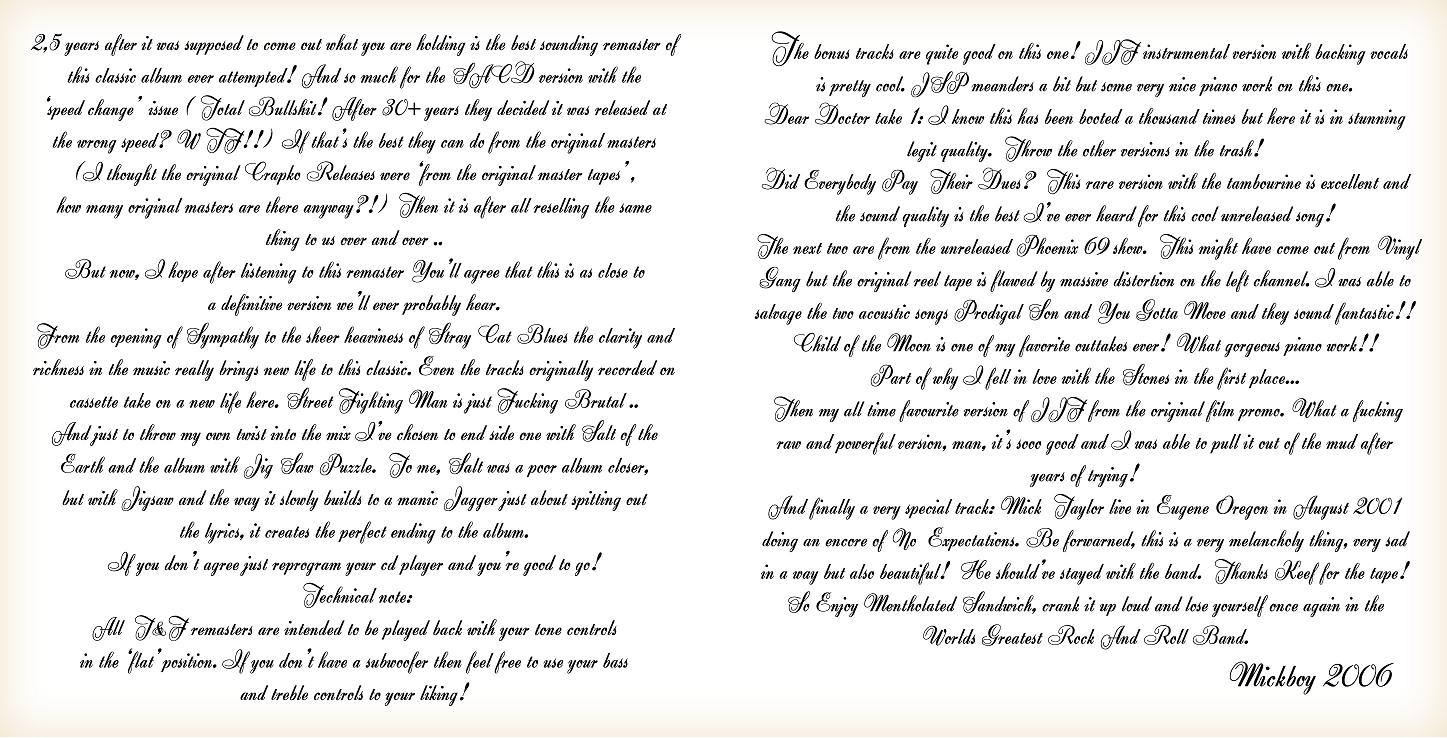 2,5 years after it was supposed to come out what you are holding is the best sounding remaster of
this classic album ever attempted! And so much for the SACD version with the
'speed change' issue ( Total Bullshit! After 30+ years they decided it was released at
the wrong speed? WTF!!) If that's the best they can do from the original masters
(I thought the original Crapko Releases were 'from the original master tapes',
how many original masters are there anyway?!) Then it is after all reselling the same
thing to us over and over ..
But now, I hope after listening to this remaster You'll agree that this is as close to
a definitive version we'll ever probably hear.
From the opening of Sympathy to the sheer heaviness of Stray Cat Blues the clarity and
richness in the music really brings new life to this classic. Even the tracks originally recorded on
cassette take on a new life here. Street Fighting Man is just Fucking Brutal ..
And just to throw my own twist into the mix I've chosen to end side one with Salt of the
Earth and the album with Jig Saw Puzzle. To me, Salt was a poor album closer,
but with Jigsaw and the way it slowly builds to a manic Jagger just about spitting out
the lyrics, it creates the perfect ending to the album.
If you don't agree just reprogram your cd player and you're good to go!
Technical note:
All T&F remasters are intended to be played back with your tone controls
in the 'flat' position. If you don't have a subwoofer then feel free to use your bass
and treble controls to your liking!
The bonus tracks are quite good on this one! JJF instrumental version with backing vocals
is pretty cool. JSP meanders a bit but some very nice piano work on this one.
Dear Doctor take 1: I know this has been booted a thousand times but here it is in stunning
legit quality. Throw the other versions in the trash!
Did Everybody Pay Their Dues? This rare version with the tambourine is excellent and
the sound quality is the best I've ever heard for this cool unreleased song!
The next two are from the unreleased Phoenix 69 show. This might have come out from Vinyl
Gang but the original reel tape is flawed by massive distortion on the left channel. I was able to
salvage the two acoustic songs Prodigal Son and You Gotta Move and they sound fantastic!!
Child of the Moon is one of my favorite outtakes ever! What gorgeous piano work!!
Part of why I fell in love with the Stones in the first place...
Then my all time favourite version of JJF from the original film promo. What a fucking
raw and powerful version, man, it's sooo good and I was able to pull it out of the mud after
years of trying!
And finally a very special track: Mick Taylor live in Eugene Oregon in August 2001
doing an encore of No Expectations. Be forwarned, this is a very melancholy thing, very sad
in a way but also beautiful! He should've stayed with the band. Thanks Keef for the tape!
So Enjoy Mentholated Sandwich, crank it up loud and lose yourself once again in the
Worlds Greatest Rock And Roll Band.
Mickboy 2006